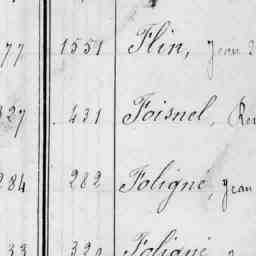 77 1551 Flin, Jean
327 431 Foisnel,
284 282 Foligné, Jean
33 320 Foligné